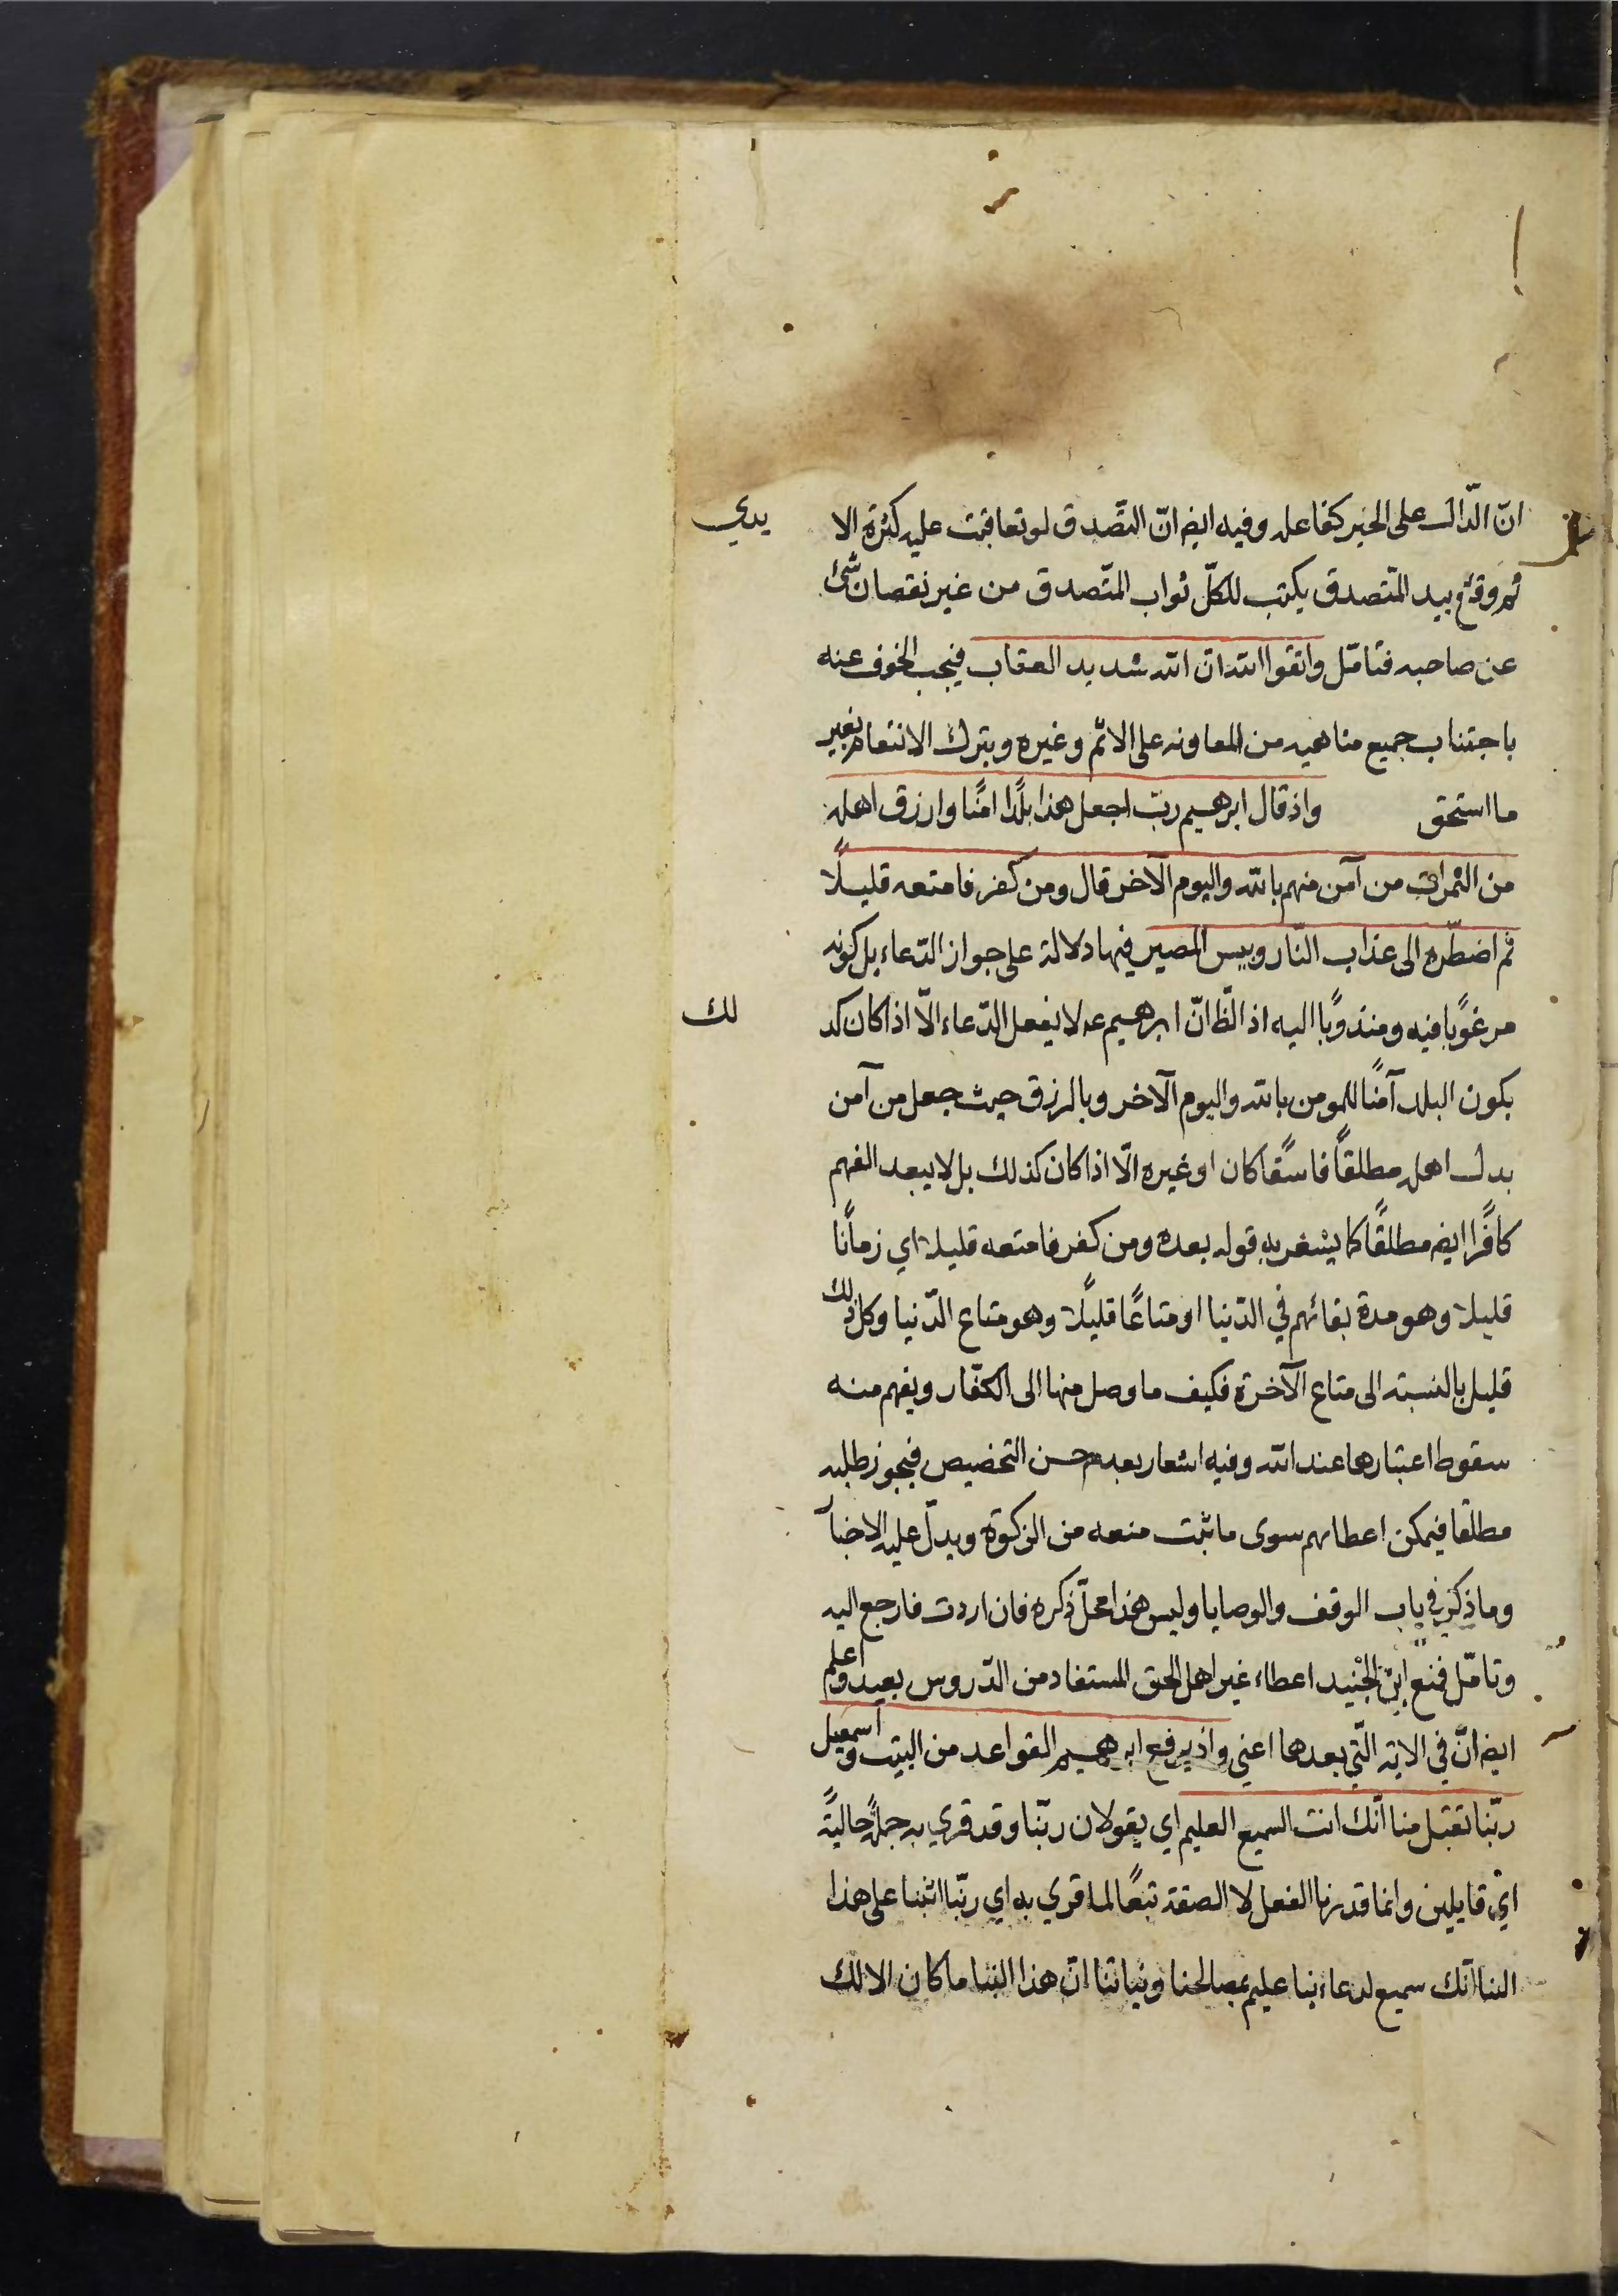 انّ الدّال على الخير كفاعله وفيه ايض انّ التصّدق لو تعاقبت عليه كثرة الا يدي
ثم وقع بيد المتصدق يكتب للكلّ ثواب المتّصدق من غير نقصان شئ
عن صاحبه فتامّل واتقوا الله ان الله شديد العقاب فيجب الخوف عنه
باجتناب جميع مناهيه من المعاونه على الاثم وغيره وبترك الانتقام بغير
ما استحق واذ قال ابرهيم ربّ اجعل هذا بلدًا امنًا وارزق اهله
من الثمرات من آمن منهم بالله واليوم الآخر قال ومن كفر فامتعه قليلًا
ثم اضطّره الى عذاب النّار وبيس المصير فيها دلالة على جواز الدّعاء بل كونه
مرغوبًا فيه ومندوبًا اليه اذ الظّ انّ ابرهيم عه لا يفعل الدّعاء الّا اذا كان كذ لك
بكون البلد آمنًا للمومن بالله واليوم الآخر وبالرزق حيث جعل من آمن
بدل اهله مطلقًا فاسقًا كان او غيره الّا اذا كان كذلك بل لا يبعد الفهم
كافرًا ايض مطلقًا كما يشعر به قوله بعده ومن كفر فامتعه قليلا اي زمانًا
قليلا وهو مدة بقائهم في الدّنيا او متاعًا قليلًا وهو متاع الدّنيا وكل ذلك
قليل بالنسبته الى متاع الآخرة فكيف ما وصل منها الى الكفّار ويفهم منه
سقوط اعتبارها عند الله وفيه اشعار بعدم حسن التخصيص فيجوز طلبه
مطلقا فيمكن اعطاهم سوى ما ثبت منعه من الزكوة ويدلّ عليه الاخبآ
وما ذكر في باب الوقف والوصايا وليس هذا محلّ ذكره فان اردت فارجع اليه
وتامّل فمنع ابن الجنيد اعطاء غير اهل الحق المستفاد من الدّروس بعيد واعلم
ايض انّ في الاية الّتي بعدها اعني واذ يرفع ابرهيم القواعد من البيت واسمعيل
ربّنا تقبل منا انّك انت السميع العليم اي يقولان ربّنا وقد قري به جملةً حاليةً
اي قايلين وانما قدرنا الفعل لا الصفة تبعًا لما قري به اي ربّنا اثبنا على هذا
البنا انّك سميع لدعاءنا عليم بمصالحنا ونياتنا انّ هذا البنا ما كان الا لك